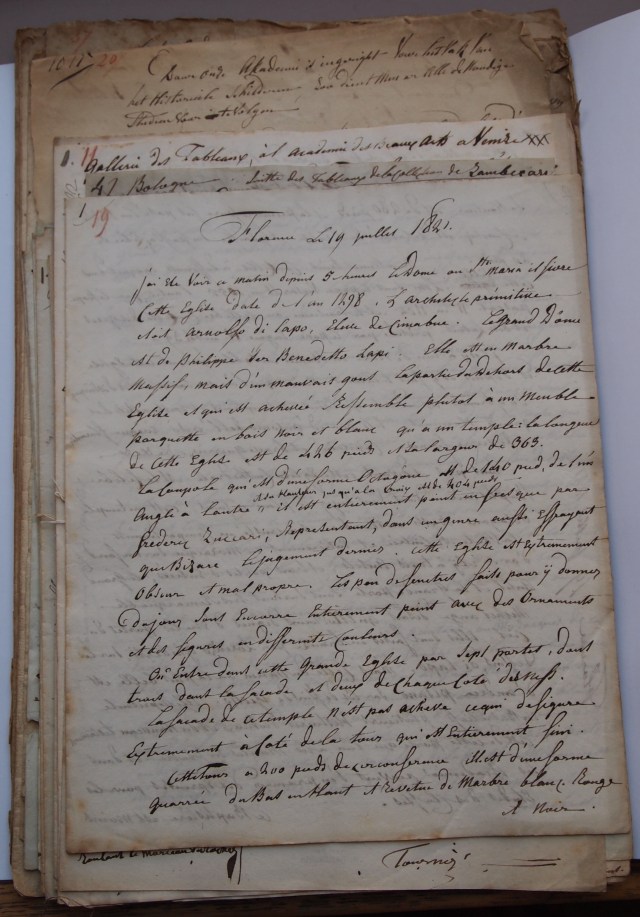 20
Akademi
het Historiele Schilderen
11
Gallerie des Tableaux, à l'academie des Beaux Arts a Venise XX
41 Bologne. Suitte des Tableaux de la Collection de Zambecari
1 19
Florence Le 19 juillet 1821.
j'ai Eté Voir ce matin depuis 5 heures Le Dome ou Ste maria del fiore
Cette Eglise date de l'an 1298. L'architecte primitive
etait arnolfo di Lapo, Eleve de Cimabue. Le grand Dôme
est de Philippe Ser Benedetto Lapi. Elle est en Marbre
Massif, mais d'un mauvais gout la partie du Dehors de cette
Eglise et qui est achevée Ressemble plutot à un Meuble
parquetté en bois noir et blanc qu'a un temple: la longeur
de Cette Eglise est de 426 pieds et sa largeur de 363.
La Coupole qui est d'une forme Octagone est de 140 pied, de l'un
et sa hauteur jusqu'a la Croix est de 404 pieds
Angle à l'autre et est entierement peint en fresque par
frederic Zuccari, Representant, dans un genre aussi Effrayant
que Bizare Le jugement dernier. Cette Eglise est Extremement
Obscur et mal propre. Les peu de fenetres faits pour ÿ donner
du jour sont Encore Entierement peint avec des Ornaments
et des figures en differente Couleurs.
On Entre dans cette Grande Eglise par Sept portes, dont
trois dans la facade et deux de Chaque Coté
La facade de ce temple n'est pas achevé ce qui defigure
Extremement à Coté de la tour qui est Entierement fini.
Cette Tour a 200 pieds de circonference Elle est d'une forme
quarrée du Bas en Haut et Revetue de Marbre blanc, Rouge
et Noir.
Tournéz